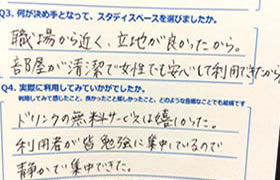 Q3. 何が決め手となって、スタディスペースを選びましたか。
職場から近く、立地が良かったから。
部屋が清潔で女性でも安心して利用できたから
Q4. 実際に利用してみていかがでしたか。
利用してみて感じたこと、良かったこと嬉しかったこと、どのような些細なことでも結構です
ドリンクの無料サービスは嬉しかった。
利用者が皆勉強に集中しているので
静かで集中できた。